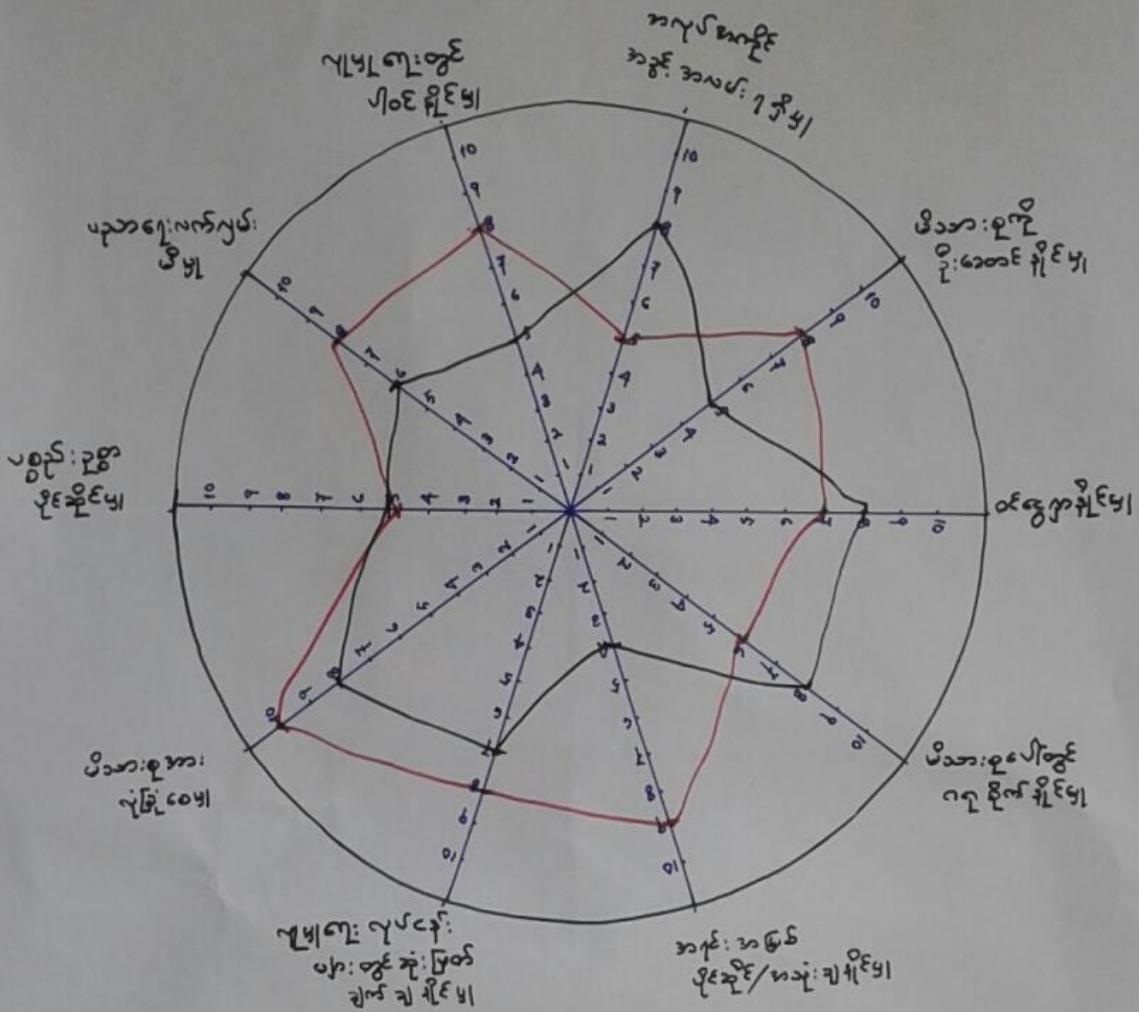 အလုပ်အကိုင်
အခွင့်အလမ်းရရှိမှု
မိသားစုကို
ဦးဆောင်နိုင်မှု
ဝင်ငွေရှာနိုင်မှု
မိသားစုပေါ်တွင်
ဂရုစိုက်နိုင်မှု
အရင်းအမြစ်
ပိုင်ဆိုင်/အသုံးချနိုင်မှု
လူမှုရေးလုပ်ငန်း
များတွင်ဆုံးဖြတ်
ချက်ချနိုင်မှု
မိသားစုအား
လုံခြုံစေမှု
ပစ္စည်းဥစ္စာ
ပိုင်ဆိုင်မှု
ပညာရေးလက်လှမ်း
မီမှု
လူမှုရေးတွင်
ပါဝင်နိုင်မှု
1 2 3 4 5 6 7 8 9 10
1 2 3 4 5 6 7 8 9 10
1 2 3 4 5 6 7 8 9 10
1 2 3 4 5 6 7 8 9 10
1 2 3 4 5 6 7 8 9 10
1 2 3 4 5 6 7 8 9 10
1 2 3 4 5 6 7 8 9 10
1 2 3 4 5 6 7 8 9 10
1 2 3 4 5 6 7 8 9 10
1 2 3 4 5 6 7 8 9 10